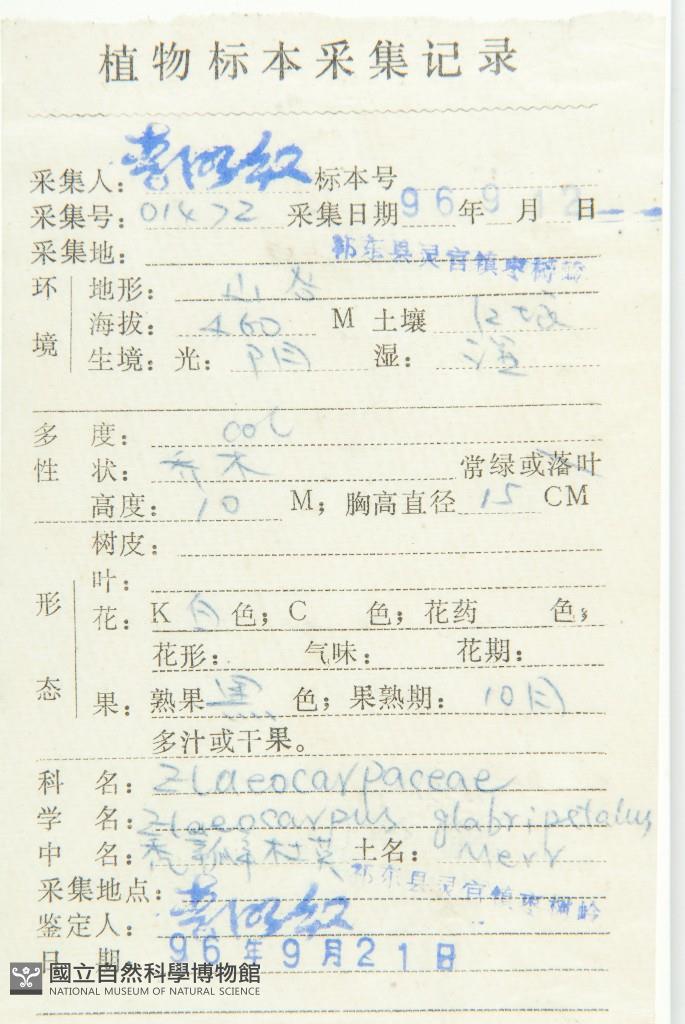 植物标本采集记录
采集人： 标本号
采集号：01472 采集日期 96年9月12日
采集地： 祁东县灵官镇枣树岭
环境 地形：山谷
海拔：460 M 土壤 红壤
生境：光：阳 湿：湿
多度：
性状：乔木 常绿或落叶
高度：10 M；胸高直径 15 CM
形态 树皮：
叶：
花：K 白 色；C 色；花药 色；
花形： 气味： 花期：
果：熟果 黑 色；果熟期：10月
多汁或干果。
科名：Elaeocarpaceae
学名：Elaeocarpus glabripetalus
中名：秃瓣杜英 土名： Merr
采集地点： 祁东县灵官镇枣树岭
鉴定人：
日期：96年9月21日
國立自然科學博物館
NATIONAL MUSEUM OF NATURAL SCIENCE